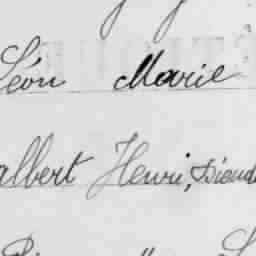 Léon Marie
albert Henri, Dieud